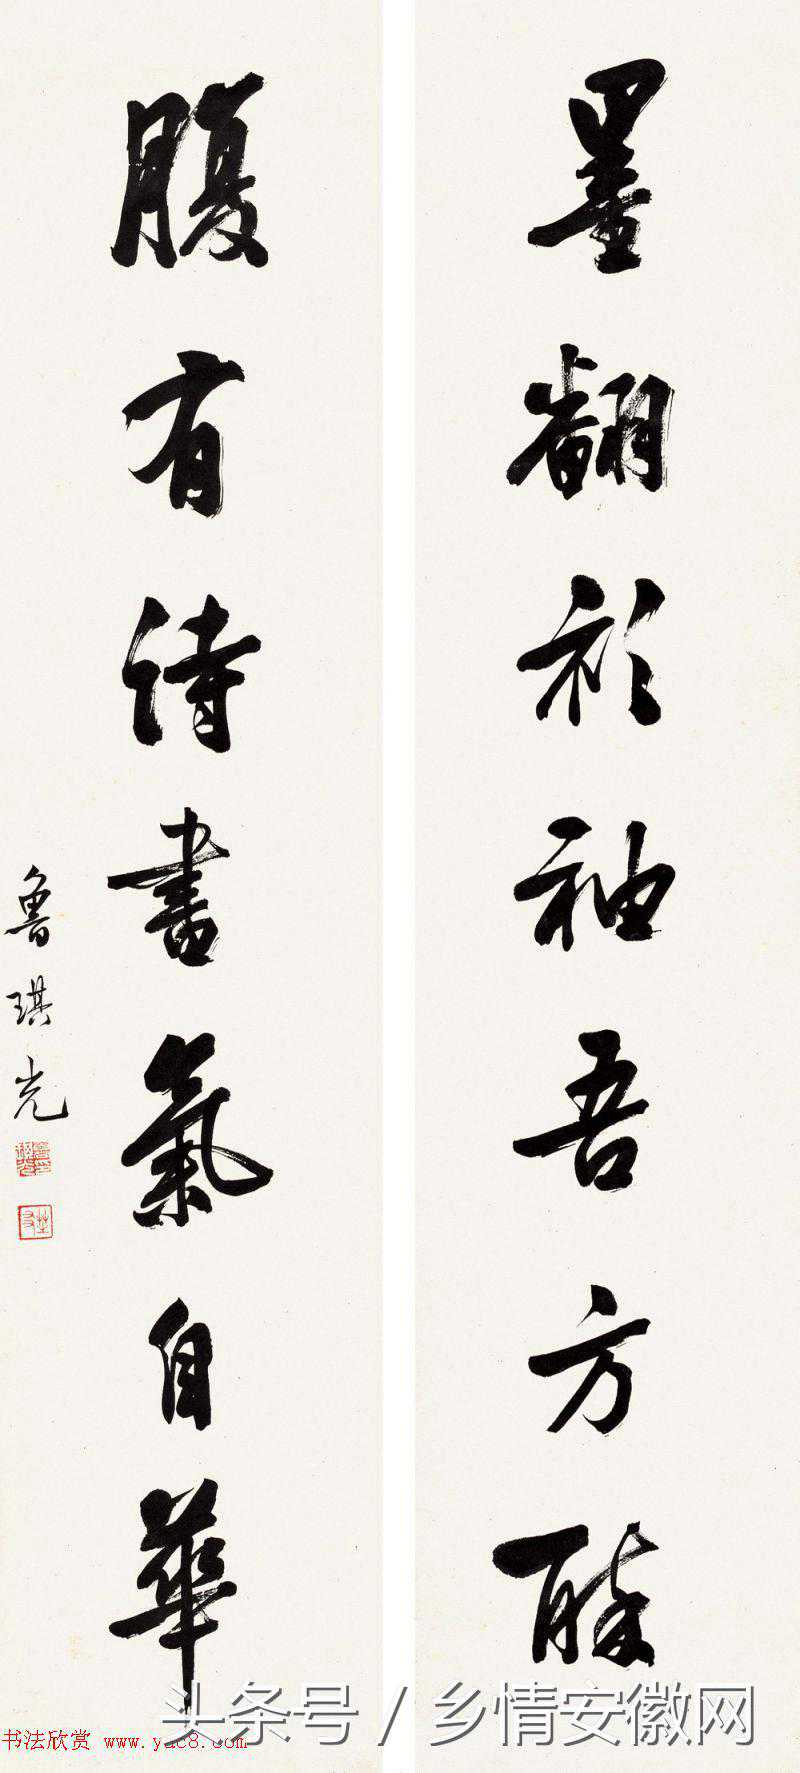 墨翻衫袖吾方醉
腹有詩書氣自華
魯琪光
头条号 / 乡情安徽网
书法欣赏 www.yac8.com